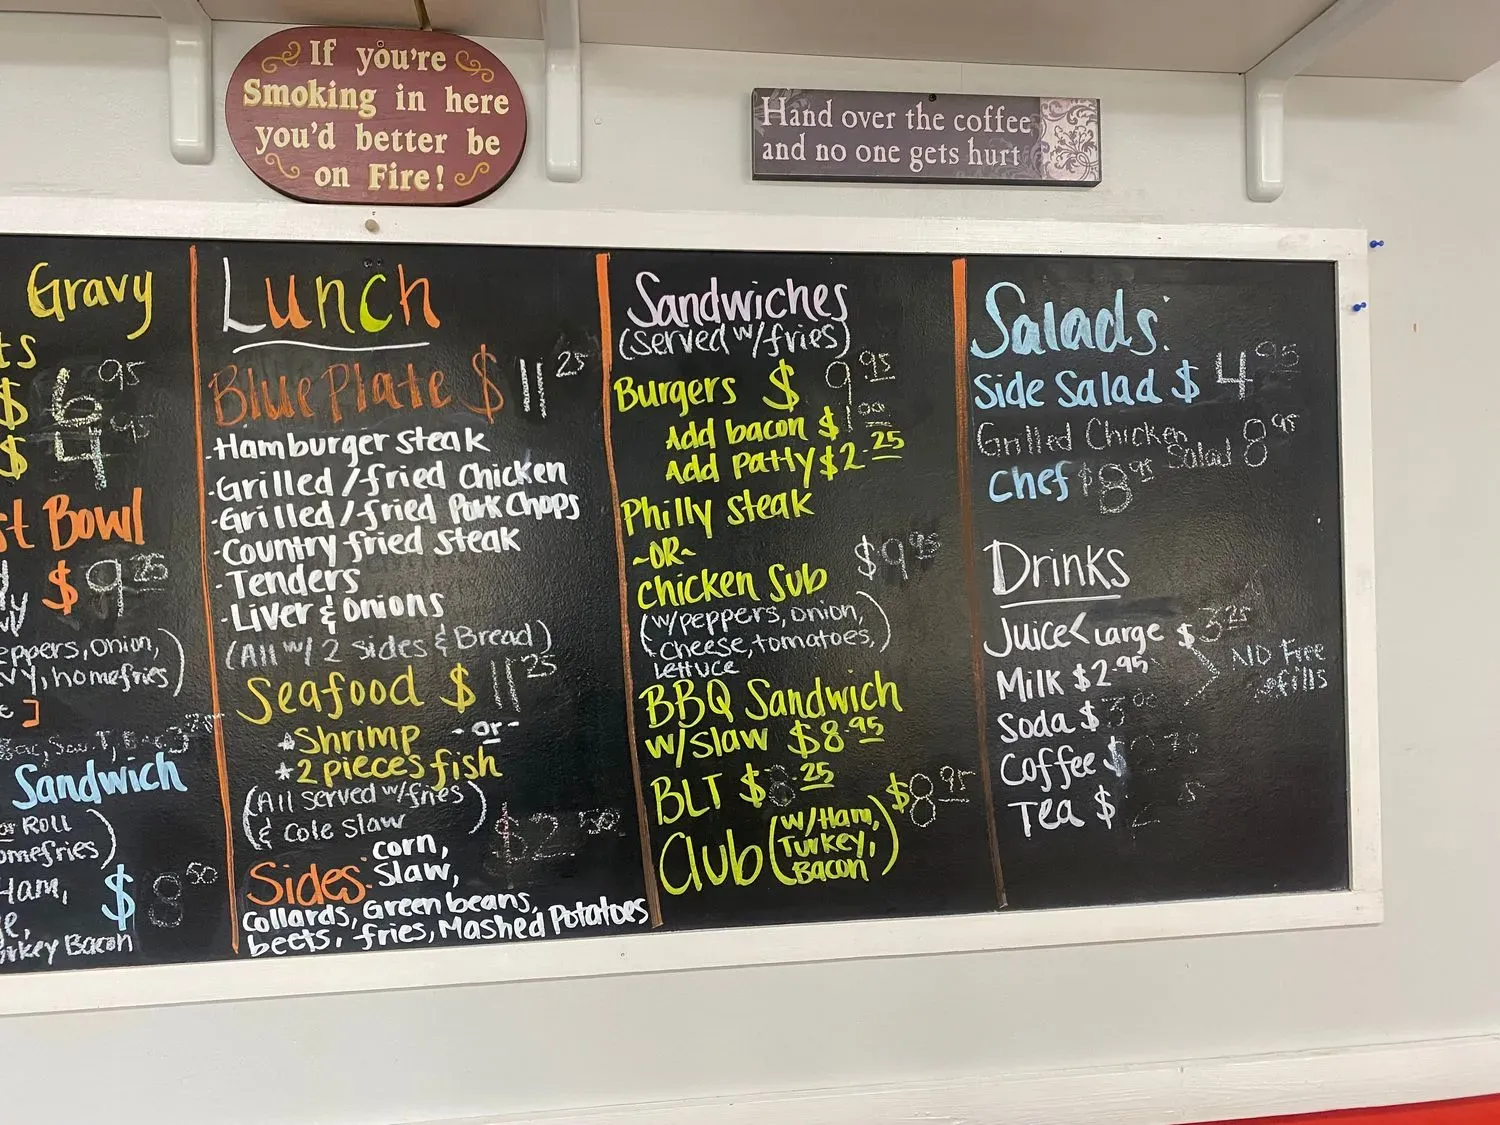 If you're
Smoking in here
you'd better be
on Fire!
Hand over the coffee
and no one gets hurt
Gravy
$ 6 95
$ 4 95
Bowl
$ 9 25
eppers, onion,
homefries)
Sandwich
or Roll
omefries)
Ham,
$ 8 50
urkey Bacon
Lunch
Blue Plate $ 11 25
-Hamburger steak
-Grilled/fried Chicken
-Grilled/fried Pork Chops
-Country fried steak
-Tenders
-Liver & onions
(All w/ 2 sides & Bread)
Seafood $ 11 25
*Shrimp -or-
*2 pieces fish
(All served w/fries
& Cole Slaw)
$2.50
Sides: corn,
Slaw,
collards, Green beans,
beets, fries, Mashed Potatoes
Sandwiches
(Served w/fries)
Burgers $ 9 95
Add bacon $1 00
Add Patty $2.25
Philly steak
~OR~
Chicken Sub $9 95
(w/peppers, onion,
cheese, tomatoes,
lettuce)
BBQ Sandwich
w/slaw $8.95
BLT $8.25
Club (w/Ham, Turkey, Bacon) $8 95
Salads:
Side Salad $ 4 95
Grilled Chicken Salad 8 95
Chef $8 95
Drinks
Juice< Large $3 25
Milk $2.95
NO Free
refills
Soda $3 00
Coffee $
Tea $